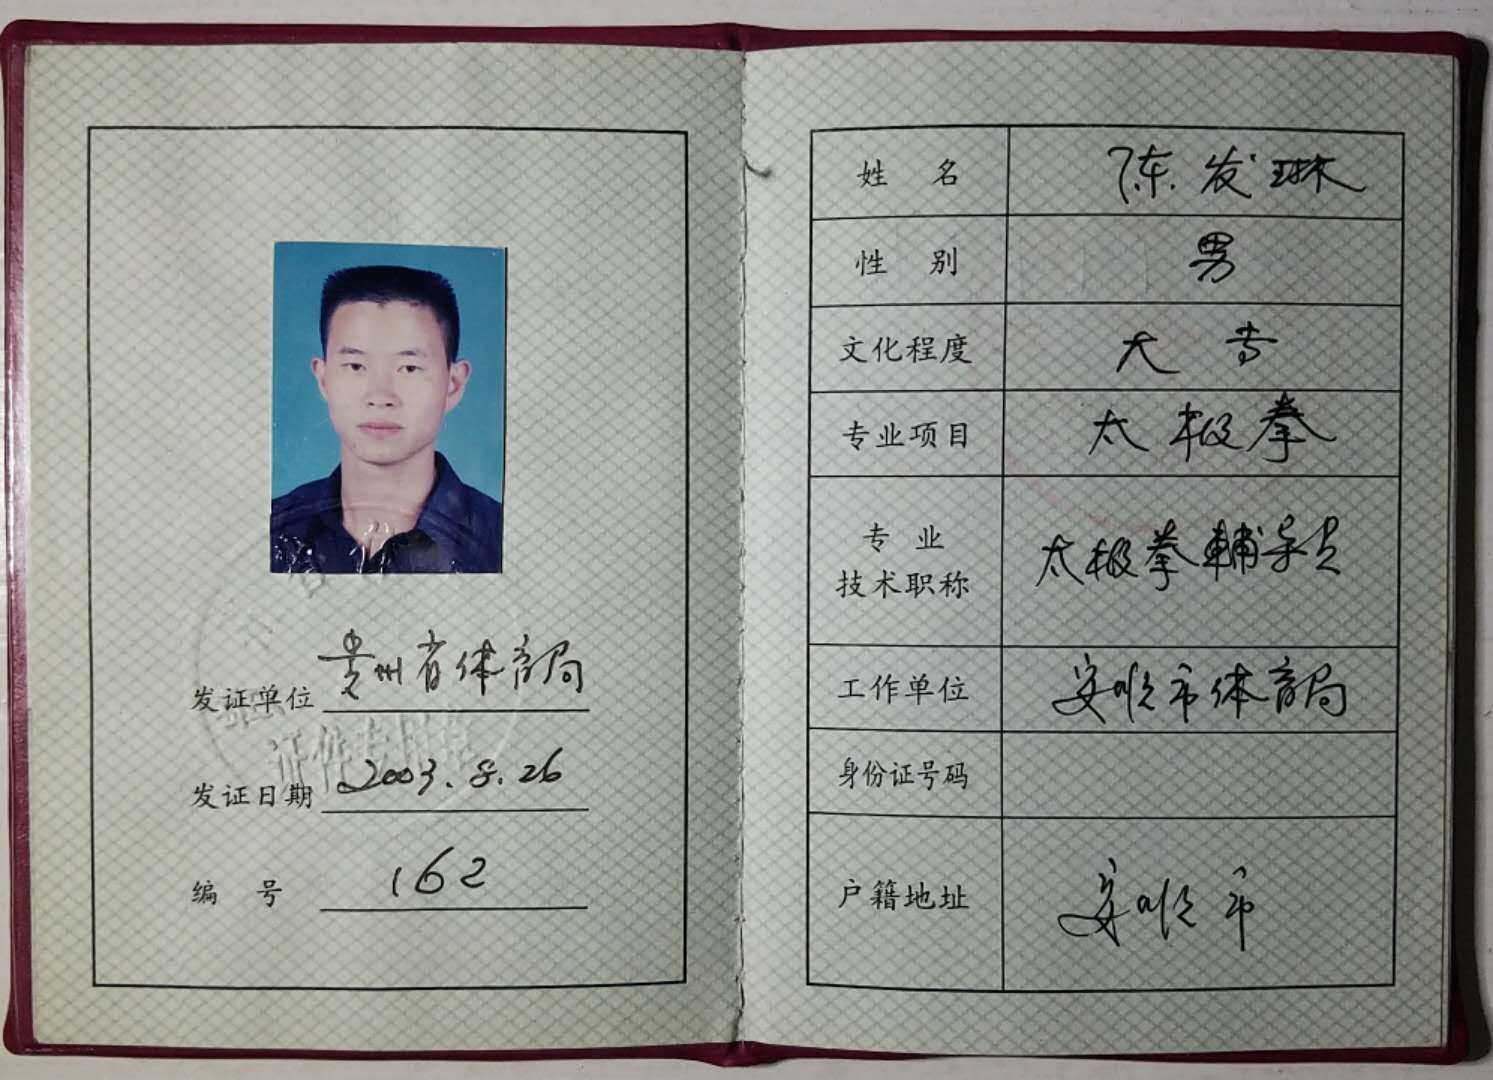 发证单位 贵州省体育局
发证日期 2003.8.26
编号 162
证件专用章
姓名 陈发琳
性别 男
文化程度 大专
专业项目 太极拳
专业
技术职称 太极拳輔导员
工作单位 安顺市体育局
身份证号码
户籍地址 安顺市